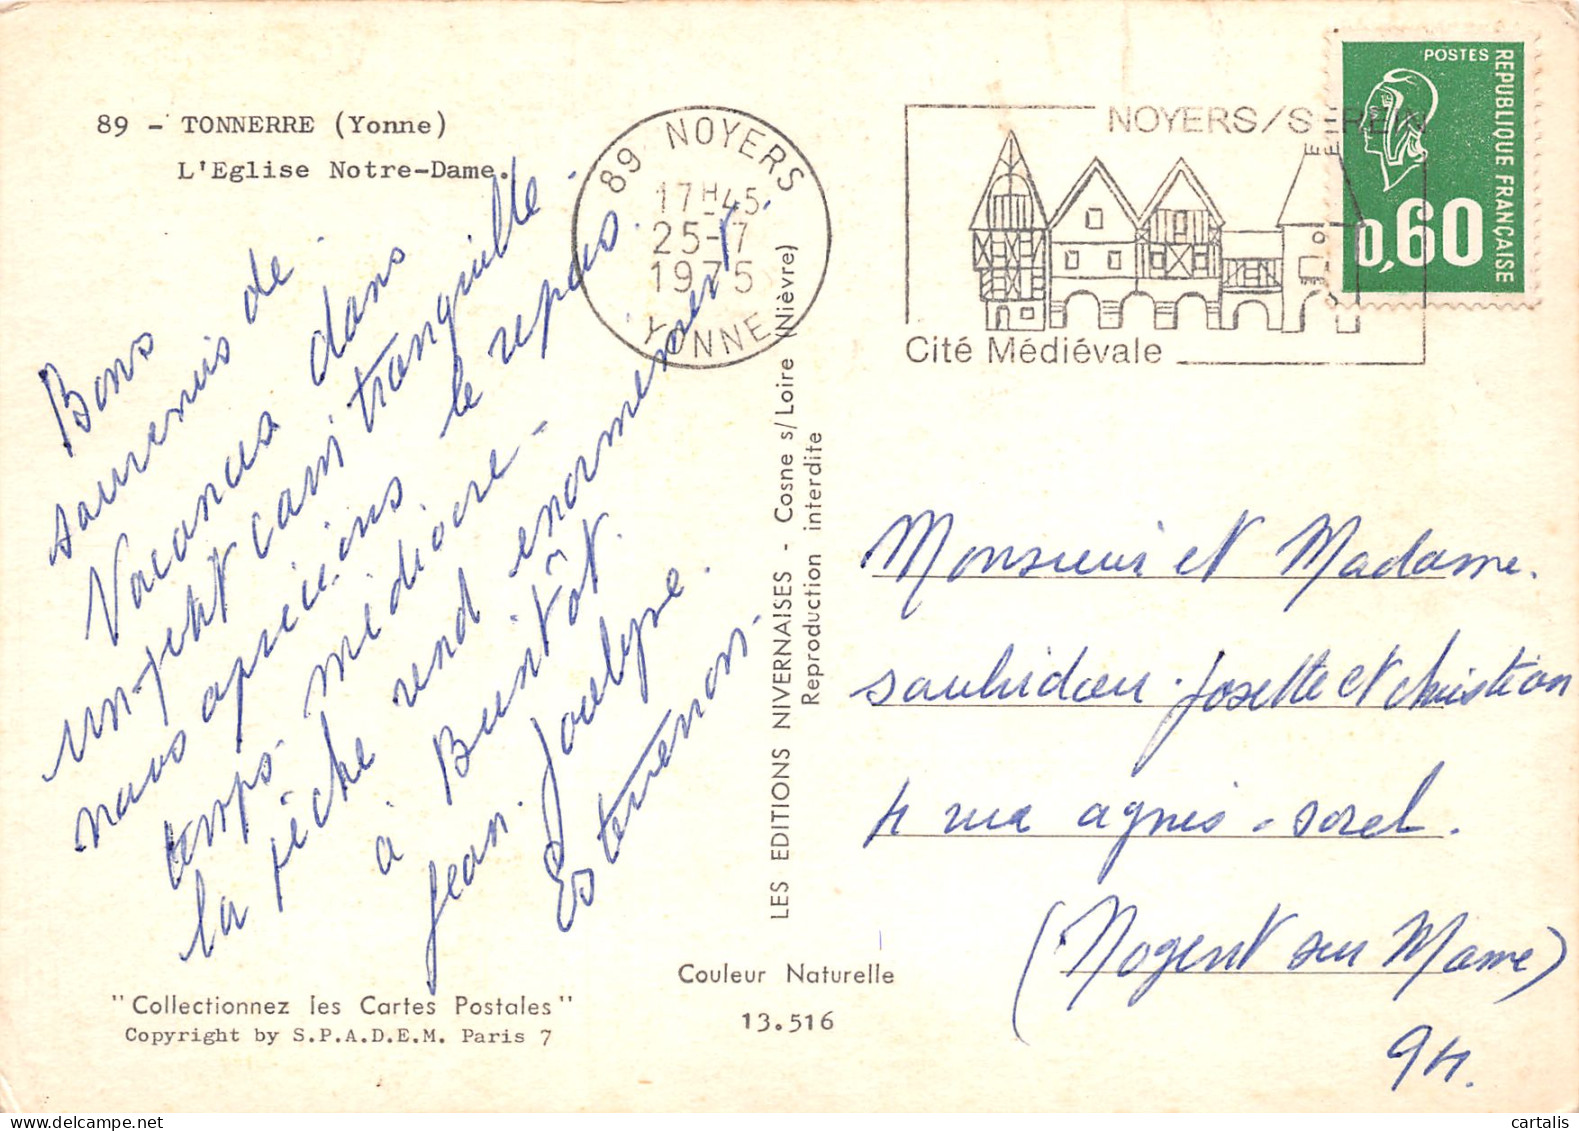 89 - TONNERRE (Yonne)
L'Eglise Notre-Dame.
Bons
souvenirs de
Vacances dans
un petit coin tranquille.
nous apprécions le repos.
temps médiocre -
la pêche rend enormement.
à Bientôt.
Jean. Jocelyne.
"Collectionnez les Cartes Postales"
Copyright by S.P.A.D.E.M. Paris 7
89 NOYERS
17H45
25-7
1975
YONNE
LES EDITIONS NIVERNAISES - Cosne s/Loire (Nièvre)
Reproduction interdite
Couleur Naturelle
13.516
NOYERS/SEREIN
Cité Médiévale
POSTES
REPUBLIQUE FRANÇAISE
0,60
Monsieur et Madame.
Josette et Christian
4 rue agnès - sorel.
(Nogent sur Marne)
94.
cartalis